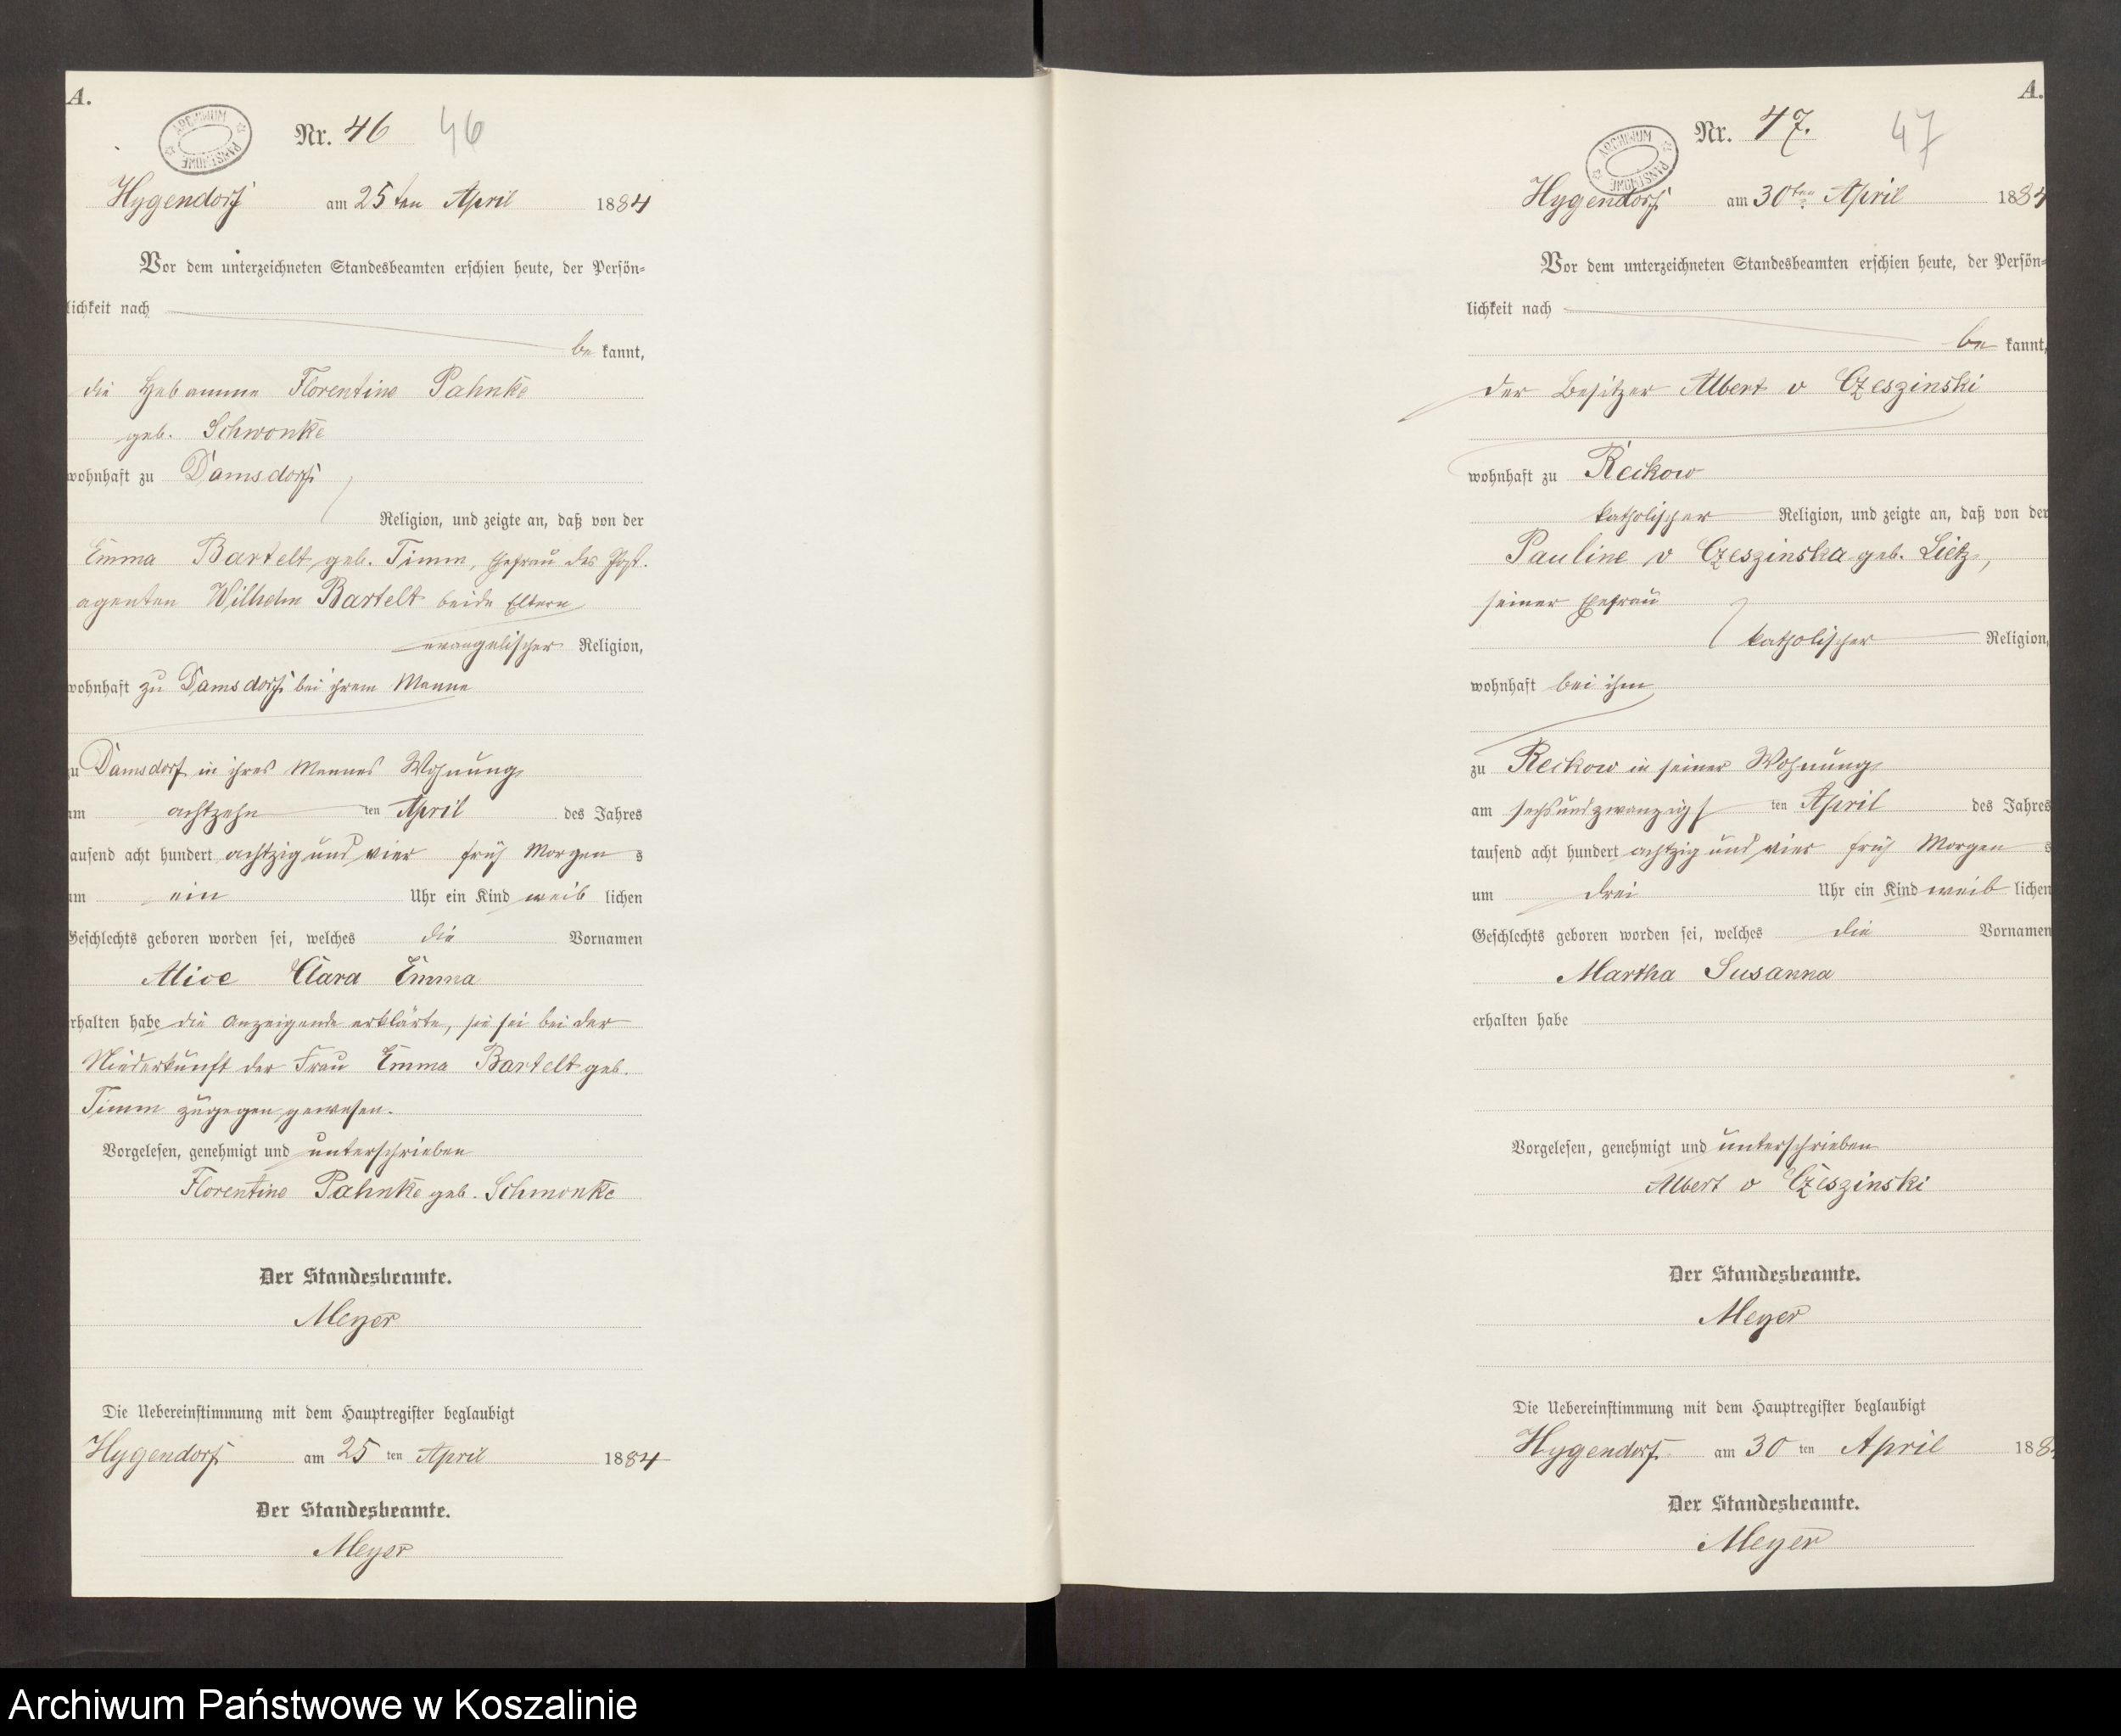 A.
ARCHIWUM PAŃSTWOWE
Nr. 46 46
Hygendorf am 25 ten April 1884
Vor dem unterzeichneten Standesbeamten erschien heute, der Persön=
lichkeit nach
be kannt,
die Hebamme Florentine Pahnke
geb. Schwonke
wohnhaft zu Damsdorf
Religion, und zeigte an, daß von der
Emma Bartelt geb. Timm, Ehefrau des Post-
agenten Wilhelm Bartelt beide Eltern
evangelischer Religion,
wohnhaft zu Damsdorf bei ihrem Manne
zu Damsdorf in ihres Mannes Wohnung
am achtzehn ten April des Jahres
tausend acht hundert achtzig und vier früh Morgen s
um ein Uhr ein Kind weib lichen
Geschlechts geboren worden sei, welches die Vornamen
Alice Clara Emma
erhalten habe die Anzeigende erklärte, sie sei bei der
Niederkunft der Frau Emma Bartelt geb.
Timm zugegen gewesen.
Vorgelesen, genehmigt und unterschrieben
Florentine Pahnke geb. Schwonke
Der Standesbeamte.
Meyer
Die Uebereinstimmung mit dem Hauptregister beglaubigt
Hygendorf am 25 ten April 1884
Der Standesbeamte.
Meyer
A.
ARCHIWUM PAŃSTWOWE
Nr. 47. 47
Hygendorf am 30ten April 1884
Vor dem unterzeichneten Standesbeamten erschien heute, der Persön=
lichkeit nach
be kannt,
der Besitzer Albert v Czeszinski
wohnhaft zu Reckow
katholischer Religion, und zeigte an, daß von der
Pauline v Czeszinska geb. Lietz,
seiner Ehefrau
katholischer Religion,
wohnhaft bei ihm
zu Reckow in seiner Wohnung
am sechsundzwanzigs ten April des Jahres
tausend acht hundert achtzig und vier früh Morgen s
um drei Uhr ein Kind weib lichen
Geschlechts geboren worden sei, welches die Vornamen
Martha Susanna
erhalten habe
Vorgelesen, genehmigt und unterschrieben
Albert v Czeszinski
Der Standesbeamte.
Meyer
Die Uebereinstimmung mit dem Hauptregister beglaubigt
Hygendorf am 30 ten April 188
Der Standesbeamte.
Meyer
Archiwum Państwowe w Koszalinie